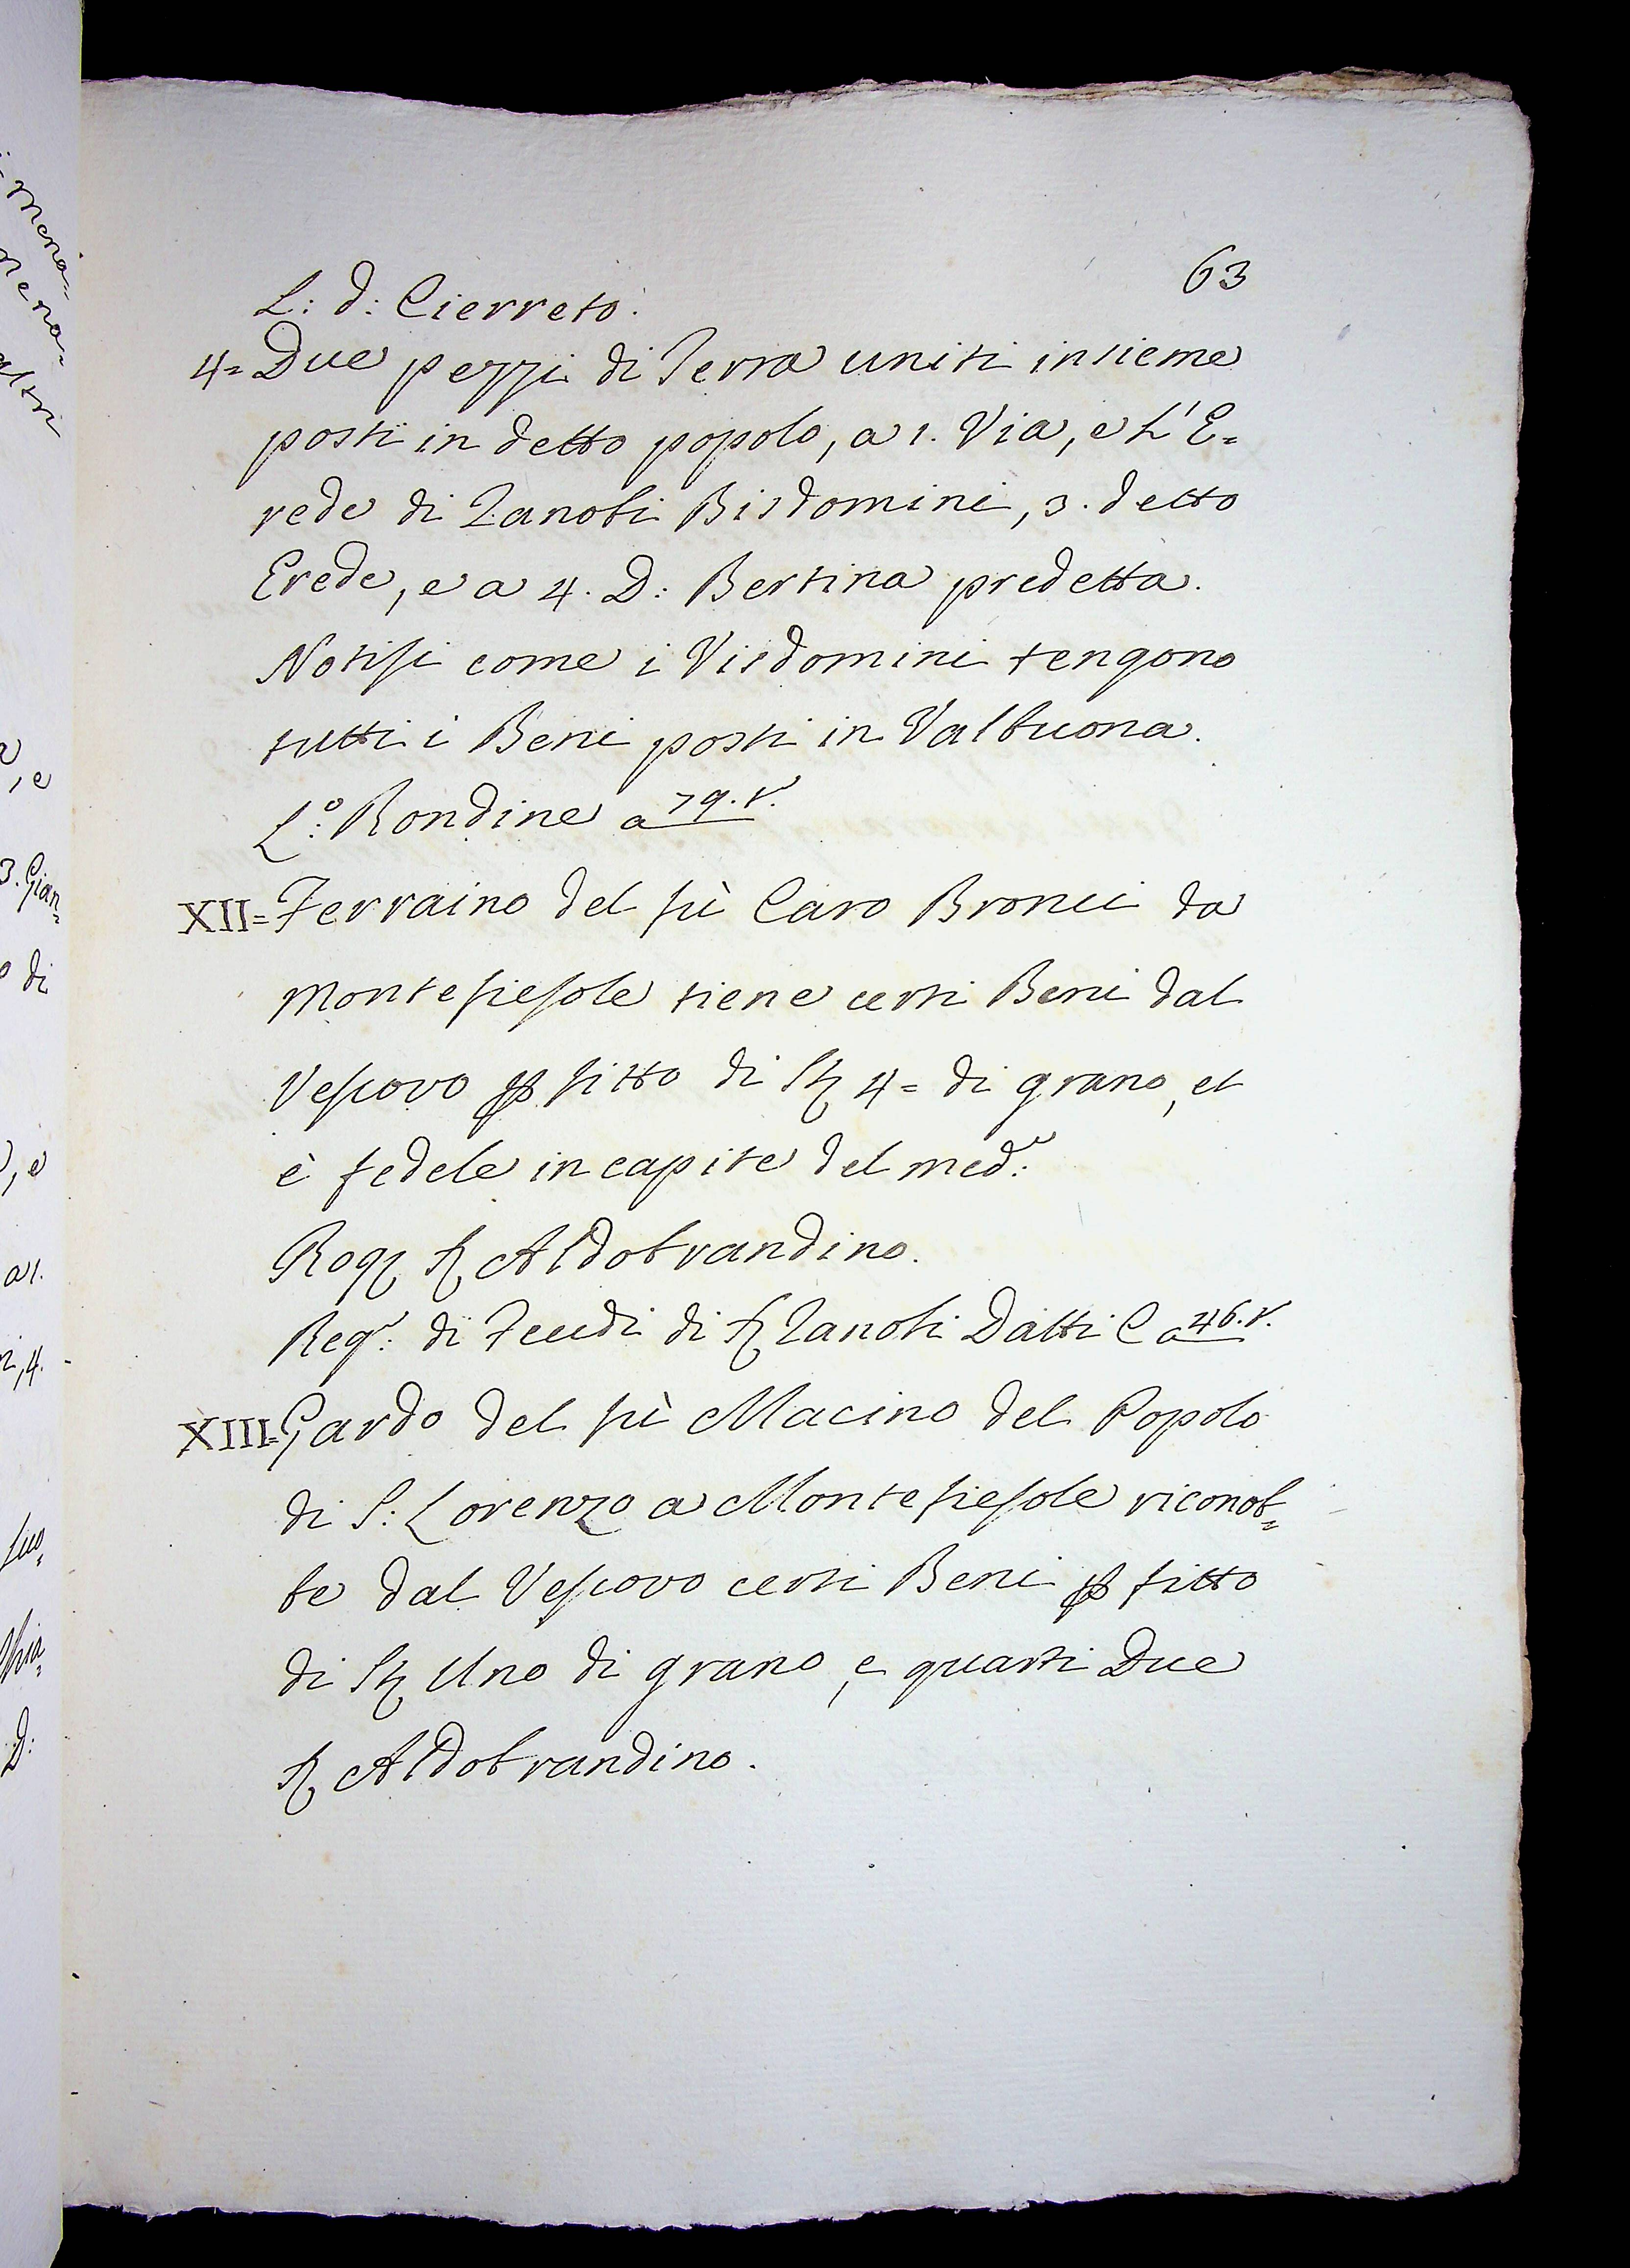 63
L: d: Cierreto.
4= Due pezzi di Terra uniti insieme
posti in detto popolo, a 1. Via, e L'E=
rede di Zanobi Bisdomini, 3. detto
Erede, e a 4. D: Bertina predetta.
Notisi come i Visdomini tengono
tutti i Beni posti in Valbuona.
L.o Rondine a 79. v.
XII= Ferraino del fù Caro Bronci da
Montefiesole tiene certi Beni dal
Vescovo p fitto di St 4= di grano, et
è fedele in capite del med.o
Rog S Aldobrandino.
Reg.o di Feudi di S Zanobi Datti C a 46. v.
XIII= Gardo del fù Macino del Popolo
di S: Lorenzo a Montefiesole riconob=
be dal Vescovo certi Beni p fitto
di St Uno di grano, e quarti Due
S Aldobrandino.